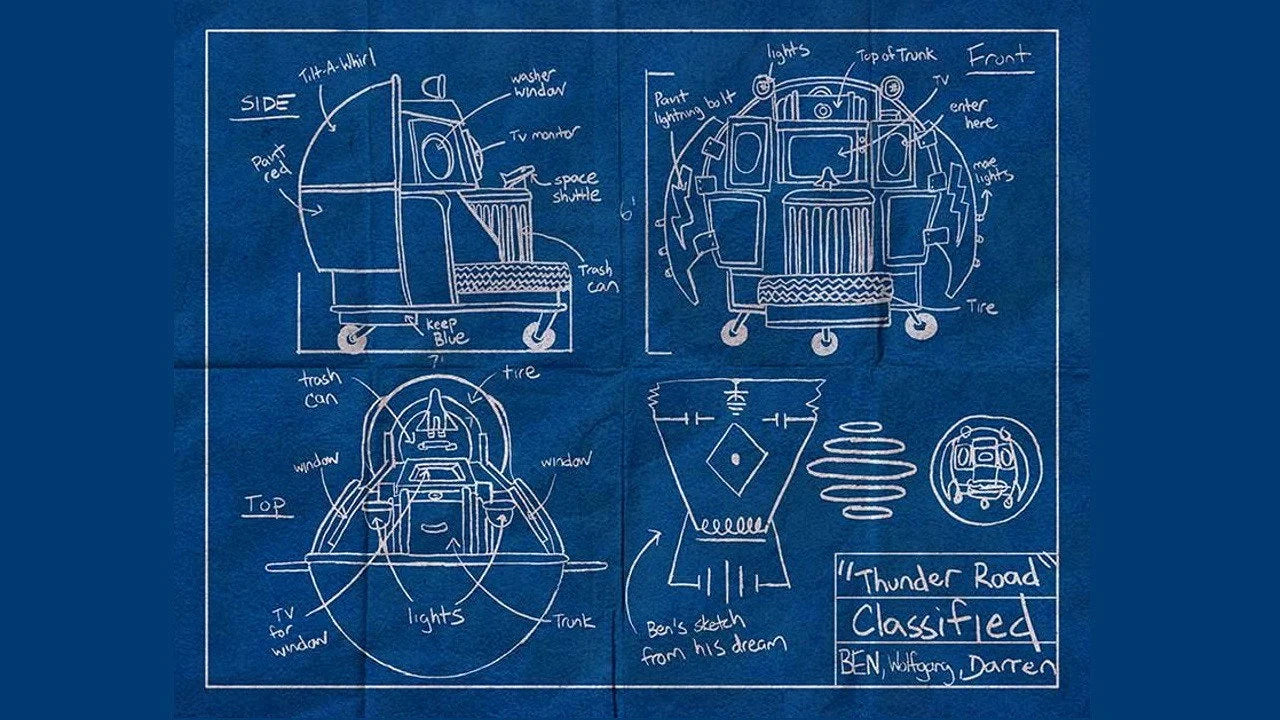 SIDE
Tilt-A-Whirl
washer
window
Tv monitor
Paint
red
space
shuttle
Trash
can
Keep
Blue
7'
Front
lights
Top of Trunk
TV
Paint
lightning bolt
enter
here
more
lights
6'
Tire
Top
trash
can
tire
window
window
TV
for
window
lights
Trunk
Ben's sketch
from his dream
"Thunder Road"
Classified
BEN, Wolfgang, Darren